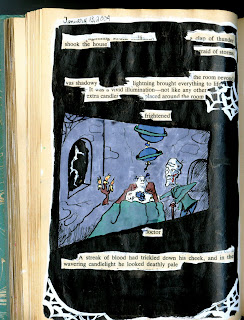 January 13, 2008
a clap of thunder
shook the house
raid of storms
the room beyond
was shadowy
lightning brought everything to li
It was a vivid illumination—not like any other
extra candles
placed around the room
frightened
doctor
A streak of blood had trickled down his cheek, and in the
wavering candlelight he looked deathly pale